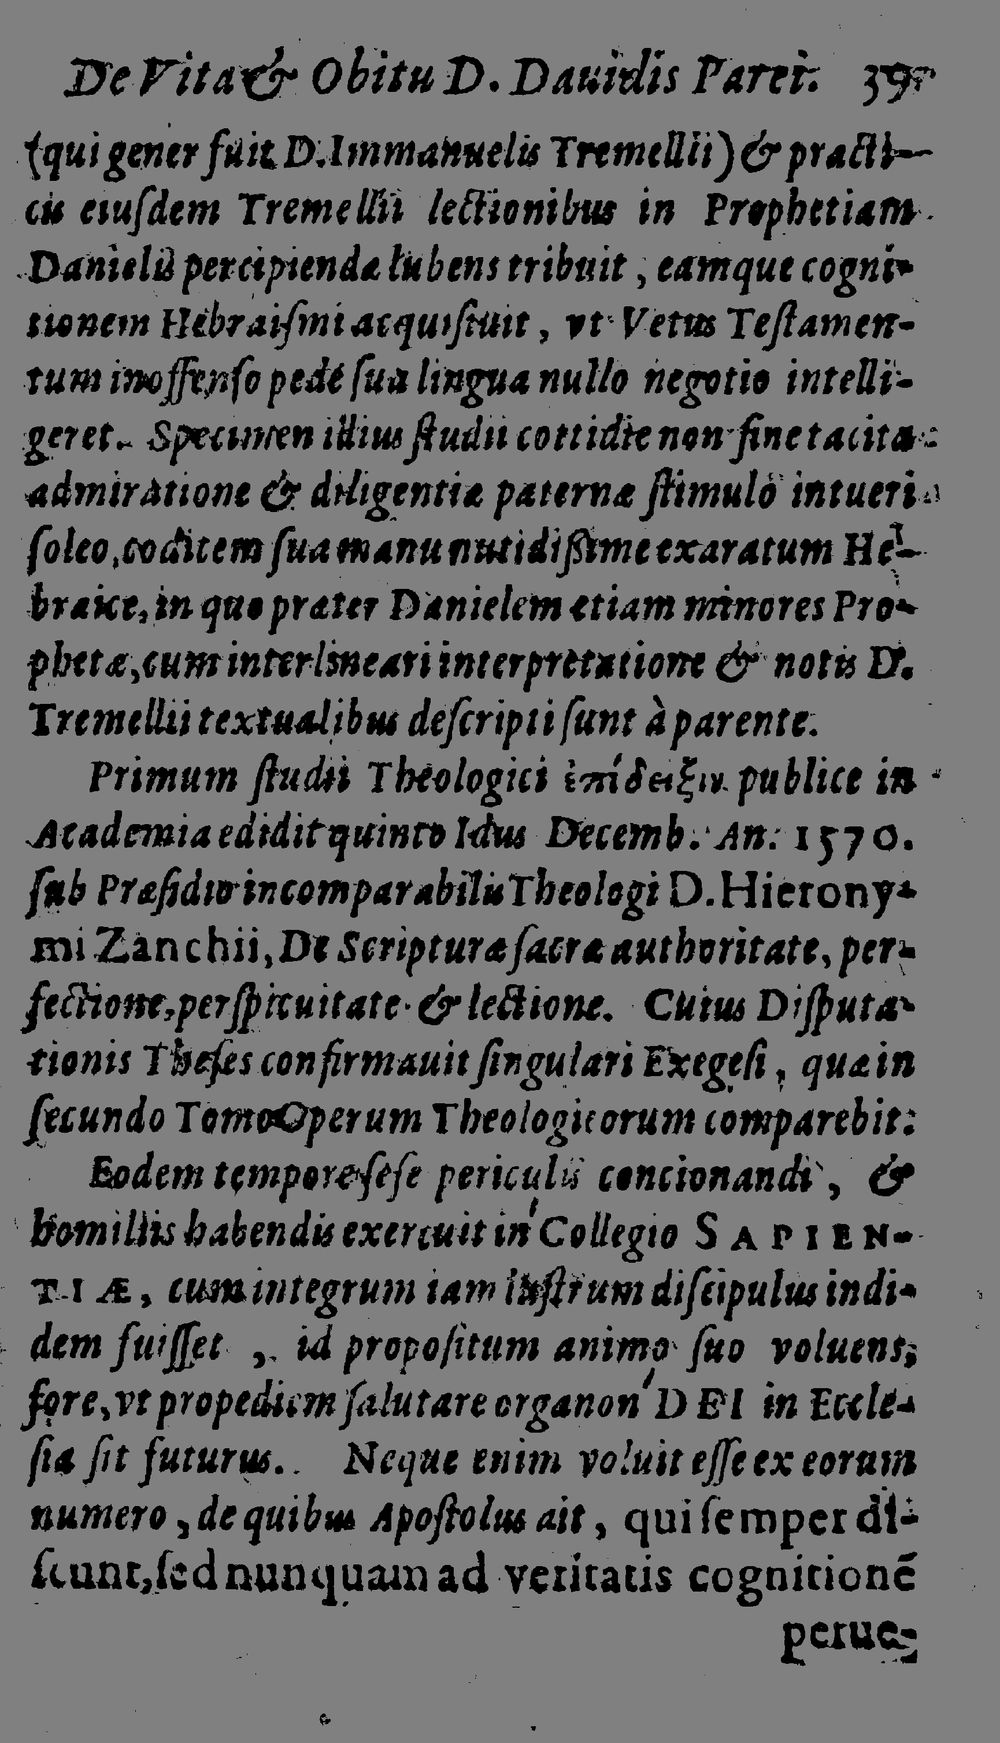 De Vita & Obitu D. Dauidis Parei. 39
(qui gener fuit D. Immanuelis Tremellii) & practi-
cis eiuſdem Tremellii lectionibus in Prophetiam
Danielis percipiendæ lubens tribuit, eamque cogni-
tionem Hebraiſmi acquiſiuit, vt Vetus Teſtamen-
tum inoffenſo pede ſua lingua nullo negotio intelli-
geret. Specimen illius ſtudii cottidie non ſine tacita
admiratione & diligentiæ paternæ ſtimulo intueri
ſoleo, codicem ſua manu nitidiſſime exaratum He-
braice, in quo præter Danielem etiam minores Pro-
phetæ, cum interlineari interpretatione & notis D.
Tremellii textualibus deſcripti ſunt à parente.
Primum ſtudii Theologici ἐπίδειξιν publice in
Academia edidit quinto Idus Decemb. An. 1570.
ſub Præſidio incomparabilis Theologi D. Hierony-
mi Zanchii, De Scripturæ ſacræ authoritate, per-
fectione, perſpicuitate & lectione. Cuius Diſputa-
tionis Theſes confirmauit ſingulari Exegeſi, quæ in
ſecundo Tomo Operum Theologicorum comparebit.
Eodem tempore ſeſe periculis concionandi, &
homiliis habendis exercuit in Collegio SAPIEN-
TIÆ, cum integrum iam luſtrum diſcipulus indi-
dem fuiſſet, id propoſitum animo ſuo voluens,
fore, vt propediem ſalutare organon DEI in Eccle-
ſia ſit futurus. Neque enim voluit eſſe ex eorum
numero, de quibus Apoſtolus ait, qui ſemper di-
ſcunt, ſed nunquam ad veritatis cognitionē
perue-